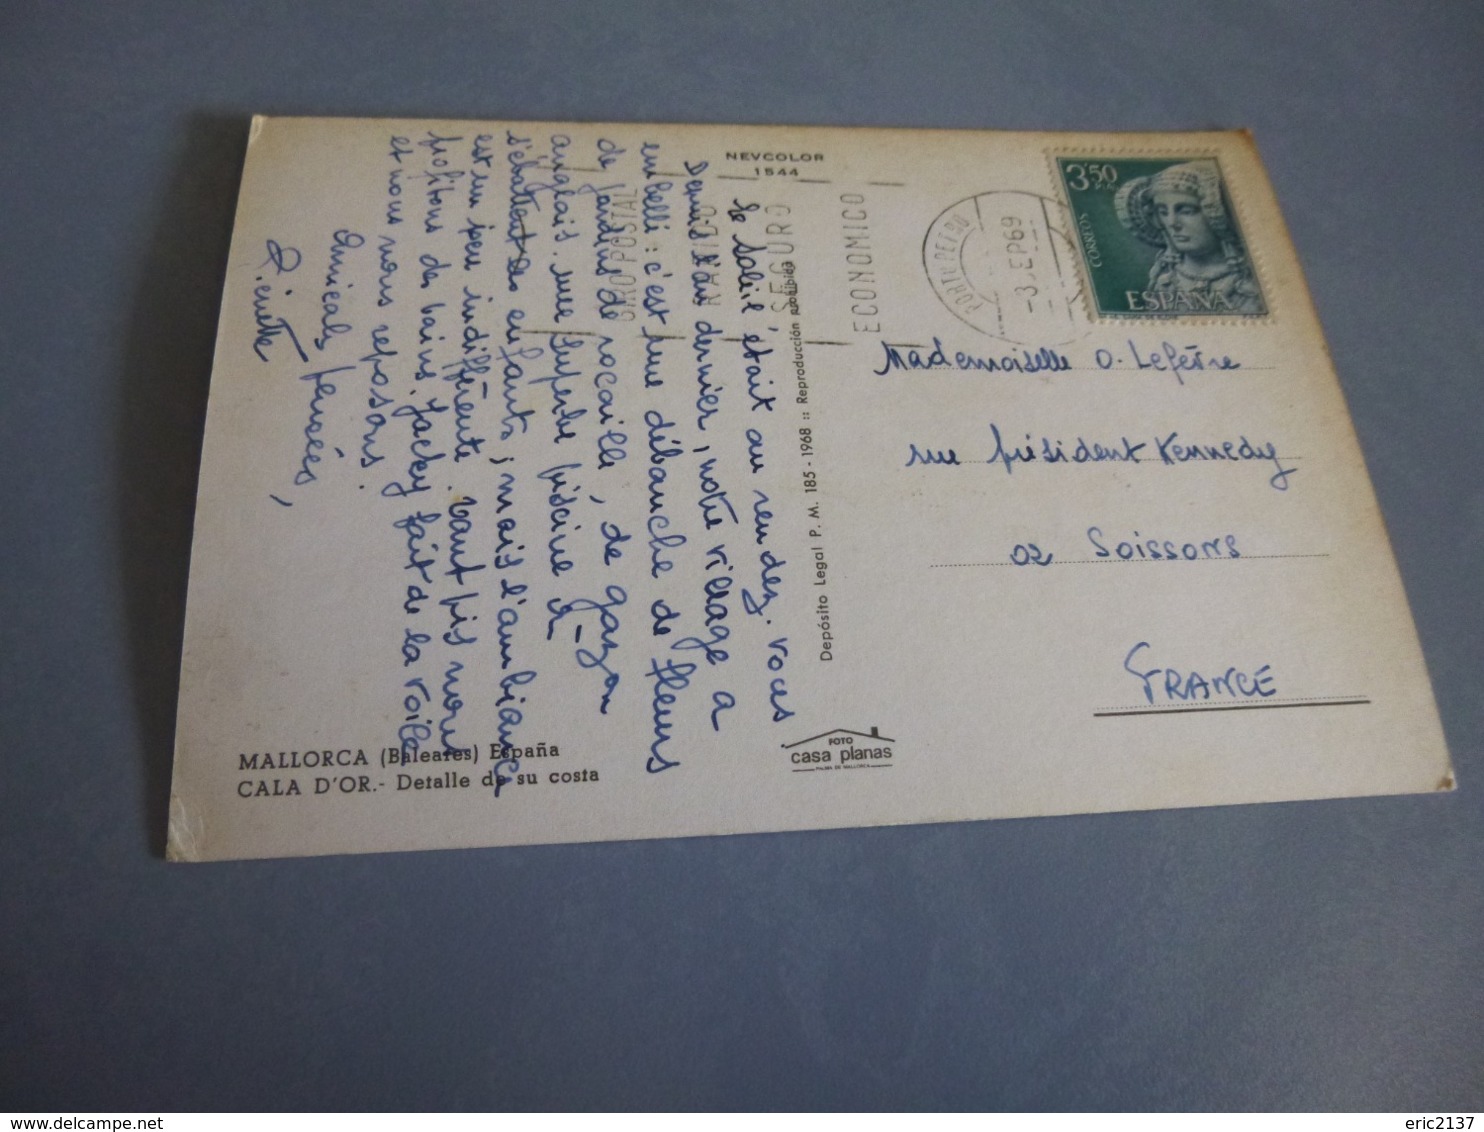 NEVCOLOR
1544
3'50
CORREOS
ESPAÑA
-3.SEP69
GIRO POSTAL
RAPIDO
SEGURO
ECONOMICO
Le soleil était au rendez-vous
Depuis l'an dernier, notre village a
embelli : c'est une débauche de fleurs
de jardins de rocaille, de gazon
anglais. une superbe piscine où
s'ébattent les enfants ; mais l'ambiance
est un peu indifférente. Tant pis nous
profitons des bains. Jacky fait de la voile
et nous nous reposons.
Amicales pensées,
Mademoiselle O. Lefèvre
rue président Kennedy
02 Soissons
FRANCE
Depósito Legal P. M. 185 - 1968 :: Reproducción prohibida
FOTO
casa planas
PALMA DE MALLORCA
MALLORCA (Baleares) España
CALA D'OR.- Detalle de su costa
delcampe.net
eric2137